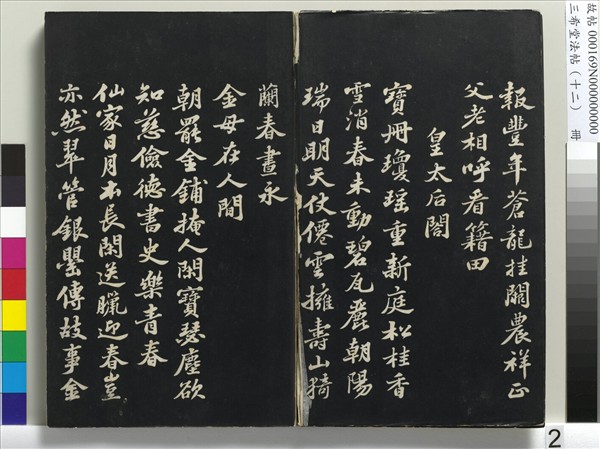 報豐年蒼龍挂闕農祥正
父老相呼看籍田
皇太后閤
寶冊瓊瑤重新庭松桂香
雪消春未動碧瓦麗朝陽
瑞日明天仗僊雲擁壽山猗
蘭春晝永
金母在人間
朝罷金鋪掩人閑寶瑟塵欲
知慈儉德書史樂青春
仙家日月本長閑送臘迎春豈
亦然翠管銀罌傳故事金
故帖 000169N000000000
三希堂法帖（十二） 冊
2